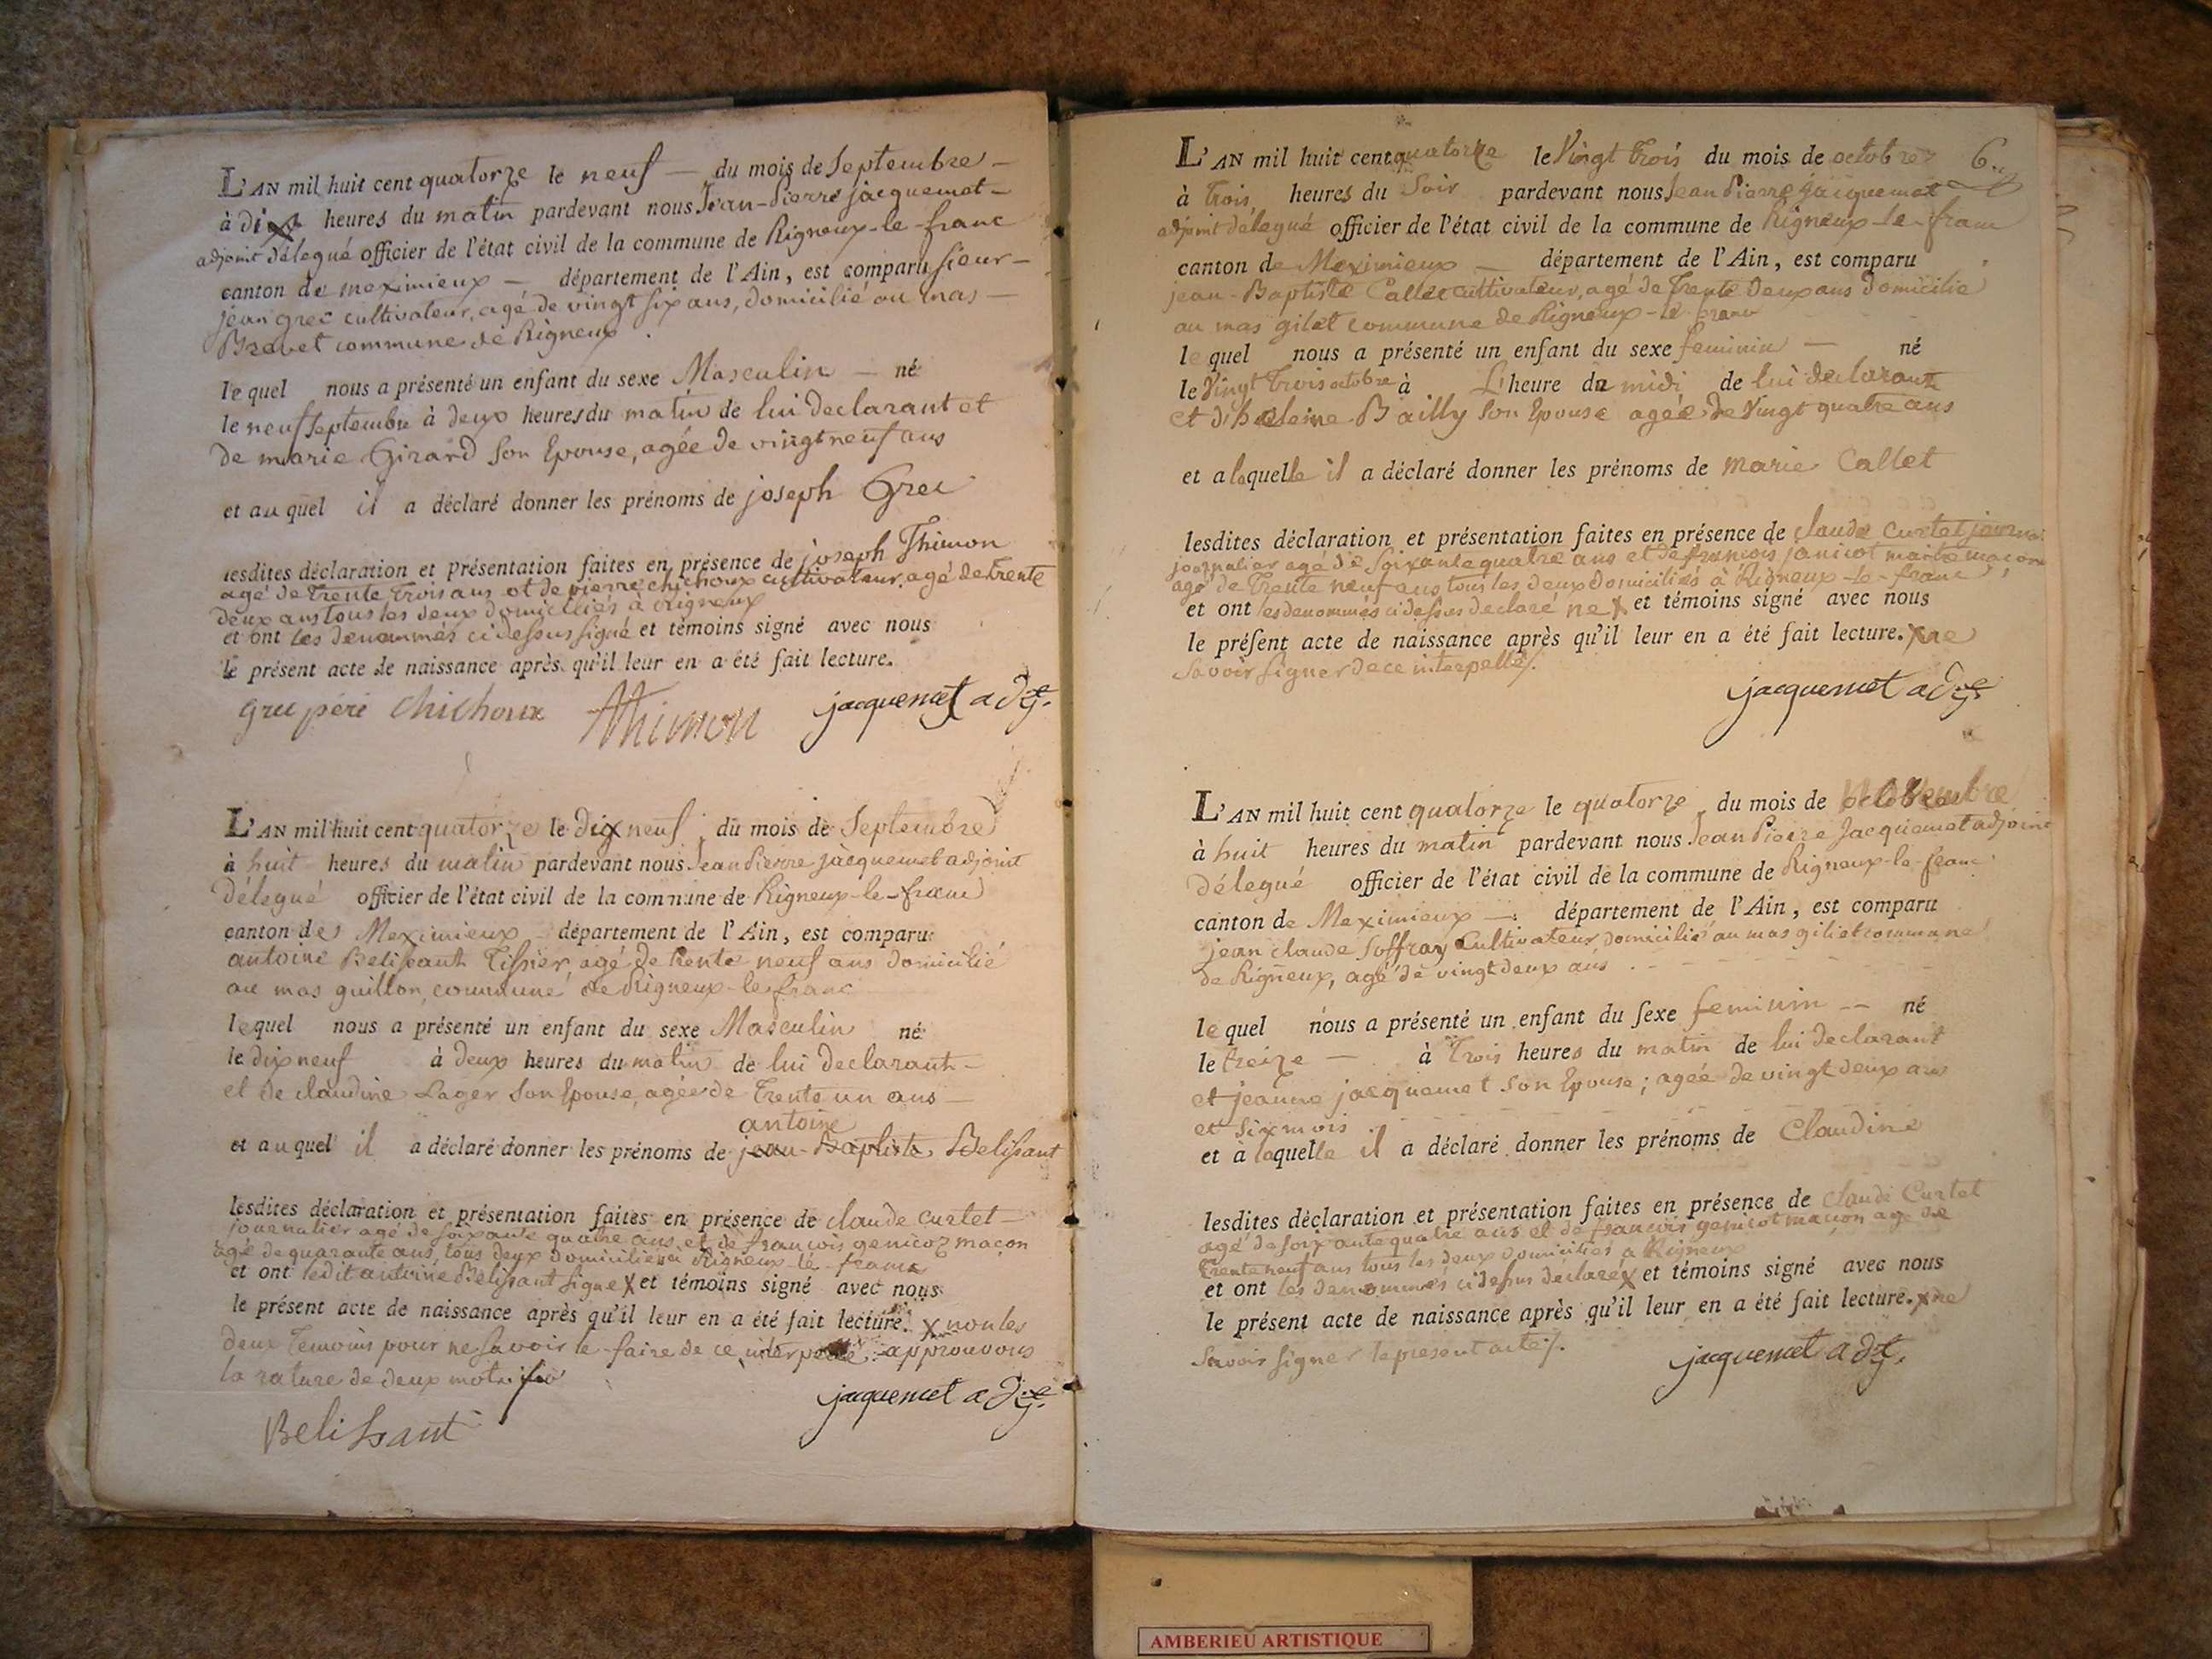 L'AN mil huit cent quatorze le neuf — du mois de Septembre —
à dix heures du matin pardevant nous Jean-Pierre jacquemet —
adjoint délegué officier de l'état civil de la commune de Rigneux-le-franc
canton de meximieux — département de l'Ain, est comparu sieur —
jean grec cultivateur, agé de vingt six ans, domicilié au mas —
Brevet commune de Rigneux.
lequel nous a présenté un enfant du sexe Masculin — né
le neuf septembre à deux heures du matin de lui declarant et
de marie Girard son Epouse, agée de vingt neuf ans
et au quel il a déclaré donner les prénoms de joseph Grec
lesdites déclaration et présentation faites en présence de joseph Thimon
agé de trente trois ans et de pierre chichoux cultivateur, agé de trente
deux ans tous les deux domiciliés à Rigneux
et ont les denommés ci dessus signé et témoins signé avec nous
le présent acte de naissance après qu'il leur en a été fait lecture.
grec pere Chichoux Thimon jacquemet adj.
L'AN mil huit cent quatorze le dix neuf, du mois de Septembre
à huit heures du matin pardevant nous Jean Pierre jacquemet adjoint
délegué officier de l'état civil de la commune de Rigneux-le-franc
canton de Meximieux — département de l'Ain, est comparu
antoine Belissant Tissier, agé de trente neuf ans domicilié
au mas guillon, commune de Rigneux-le-franc
lequel nous a présenté un enfant du sexe Masculin né
le dix neuf à deux heures du matin de lui declarant —
et de claudine Lager son Epouse, agée de trente un ans —
antoine
et au quel il a déclaré donner les prénoms de jean-Baptiste Belissant
lesdites déclaration et présentation faites en présence de claude curtet —
journalier agé de soixante quatre ans et de françois genicoz maçon
agé de quarante ans, tous deux domiciliés à Rigneux-le-franc
et ont ledit antoine Belissant signé X et témoins signé avec nous
le présent acte de naissance après qu'il leur en a été fait lecture. X non les
deux temoins pour ne savoir le faire de ce interpellé approuvons
la rature de deux mots
Belissant jacquemet adj.
6..
L'AN mil huit cent quatorze le Vingt trois du mois de octobre
à trois heures du Soir pardevant nous Jean Pierre jacquemet
adjoint délegué officier de l'état civil de la commune de Rigneux-le-franc
canton de Meximieux — département de l'Ain, est comparu
jean-Baptiste Callet cultivateur, agé de trente deux ans domicilié
au mas gilet commune de Rigneux-le franc
lequel nous a présenté un enfant du sexe feminin — né
le Vingt trois octobre à L'heure de midi de lui declarant
et d'heleine Bailly son Epouse agée de Vingt quatre ans
et a laquelle il a déclaré donner les prénoms de marie Callet
lesdites déclaration et présentation faites en présence de claude curtet
journalier agé de soixante quatre ans et de françois janicot maitre maçon
agé de trente neuf ans tous les deux domiciliés à Rigneux-le-franc
et ont les denommés ci dessus declaré ne X et témoins signé avec nous
le présent acte de naissance après qu'il leur en a été fait lecture. X ne
savoir signer de ce interpellés.
jacquemet adj.
L'AN mil huit cent quatorze le quatorze du mois de
à huit heures du matin pardevant nous Jean Pierre Jacquemet adjoint
délegué officier de l'état civil de la commune de Rigneux-le-franc
canton de Meximieux — département de l'Ain, est comparu
jean claude Soffray Cultivateur domicilié au mas giliet commune
de Rigneux, agé de vingt deux ans.
lequel nous a présenté un enfant du sexe feminin — né
le treize — à trois heures du matin de lui declarant
et jeanne jacquemet son Epouse; agée de vingt deux ans
et six mois
et à laquelle il a déclaré donner les prénoms de Claudine
lesdites déclaration et présentation faites en présence de Claude Curtet
agé de soixante quatre ans et de françois genicot maçon agé de
trente neuf ans tous les deux domiciliés a Rigneux
et ont les denommés ci dessus déclaré X et témoins signé avec nous
le présent acte de naissance après qu'il leur en a été fait lecture. X ne
Savoir signer le present acte.
jacquemet adj.
AMBERIEU ARTISTIQUE